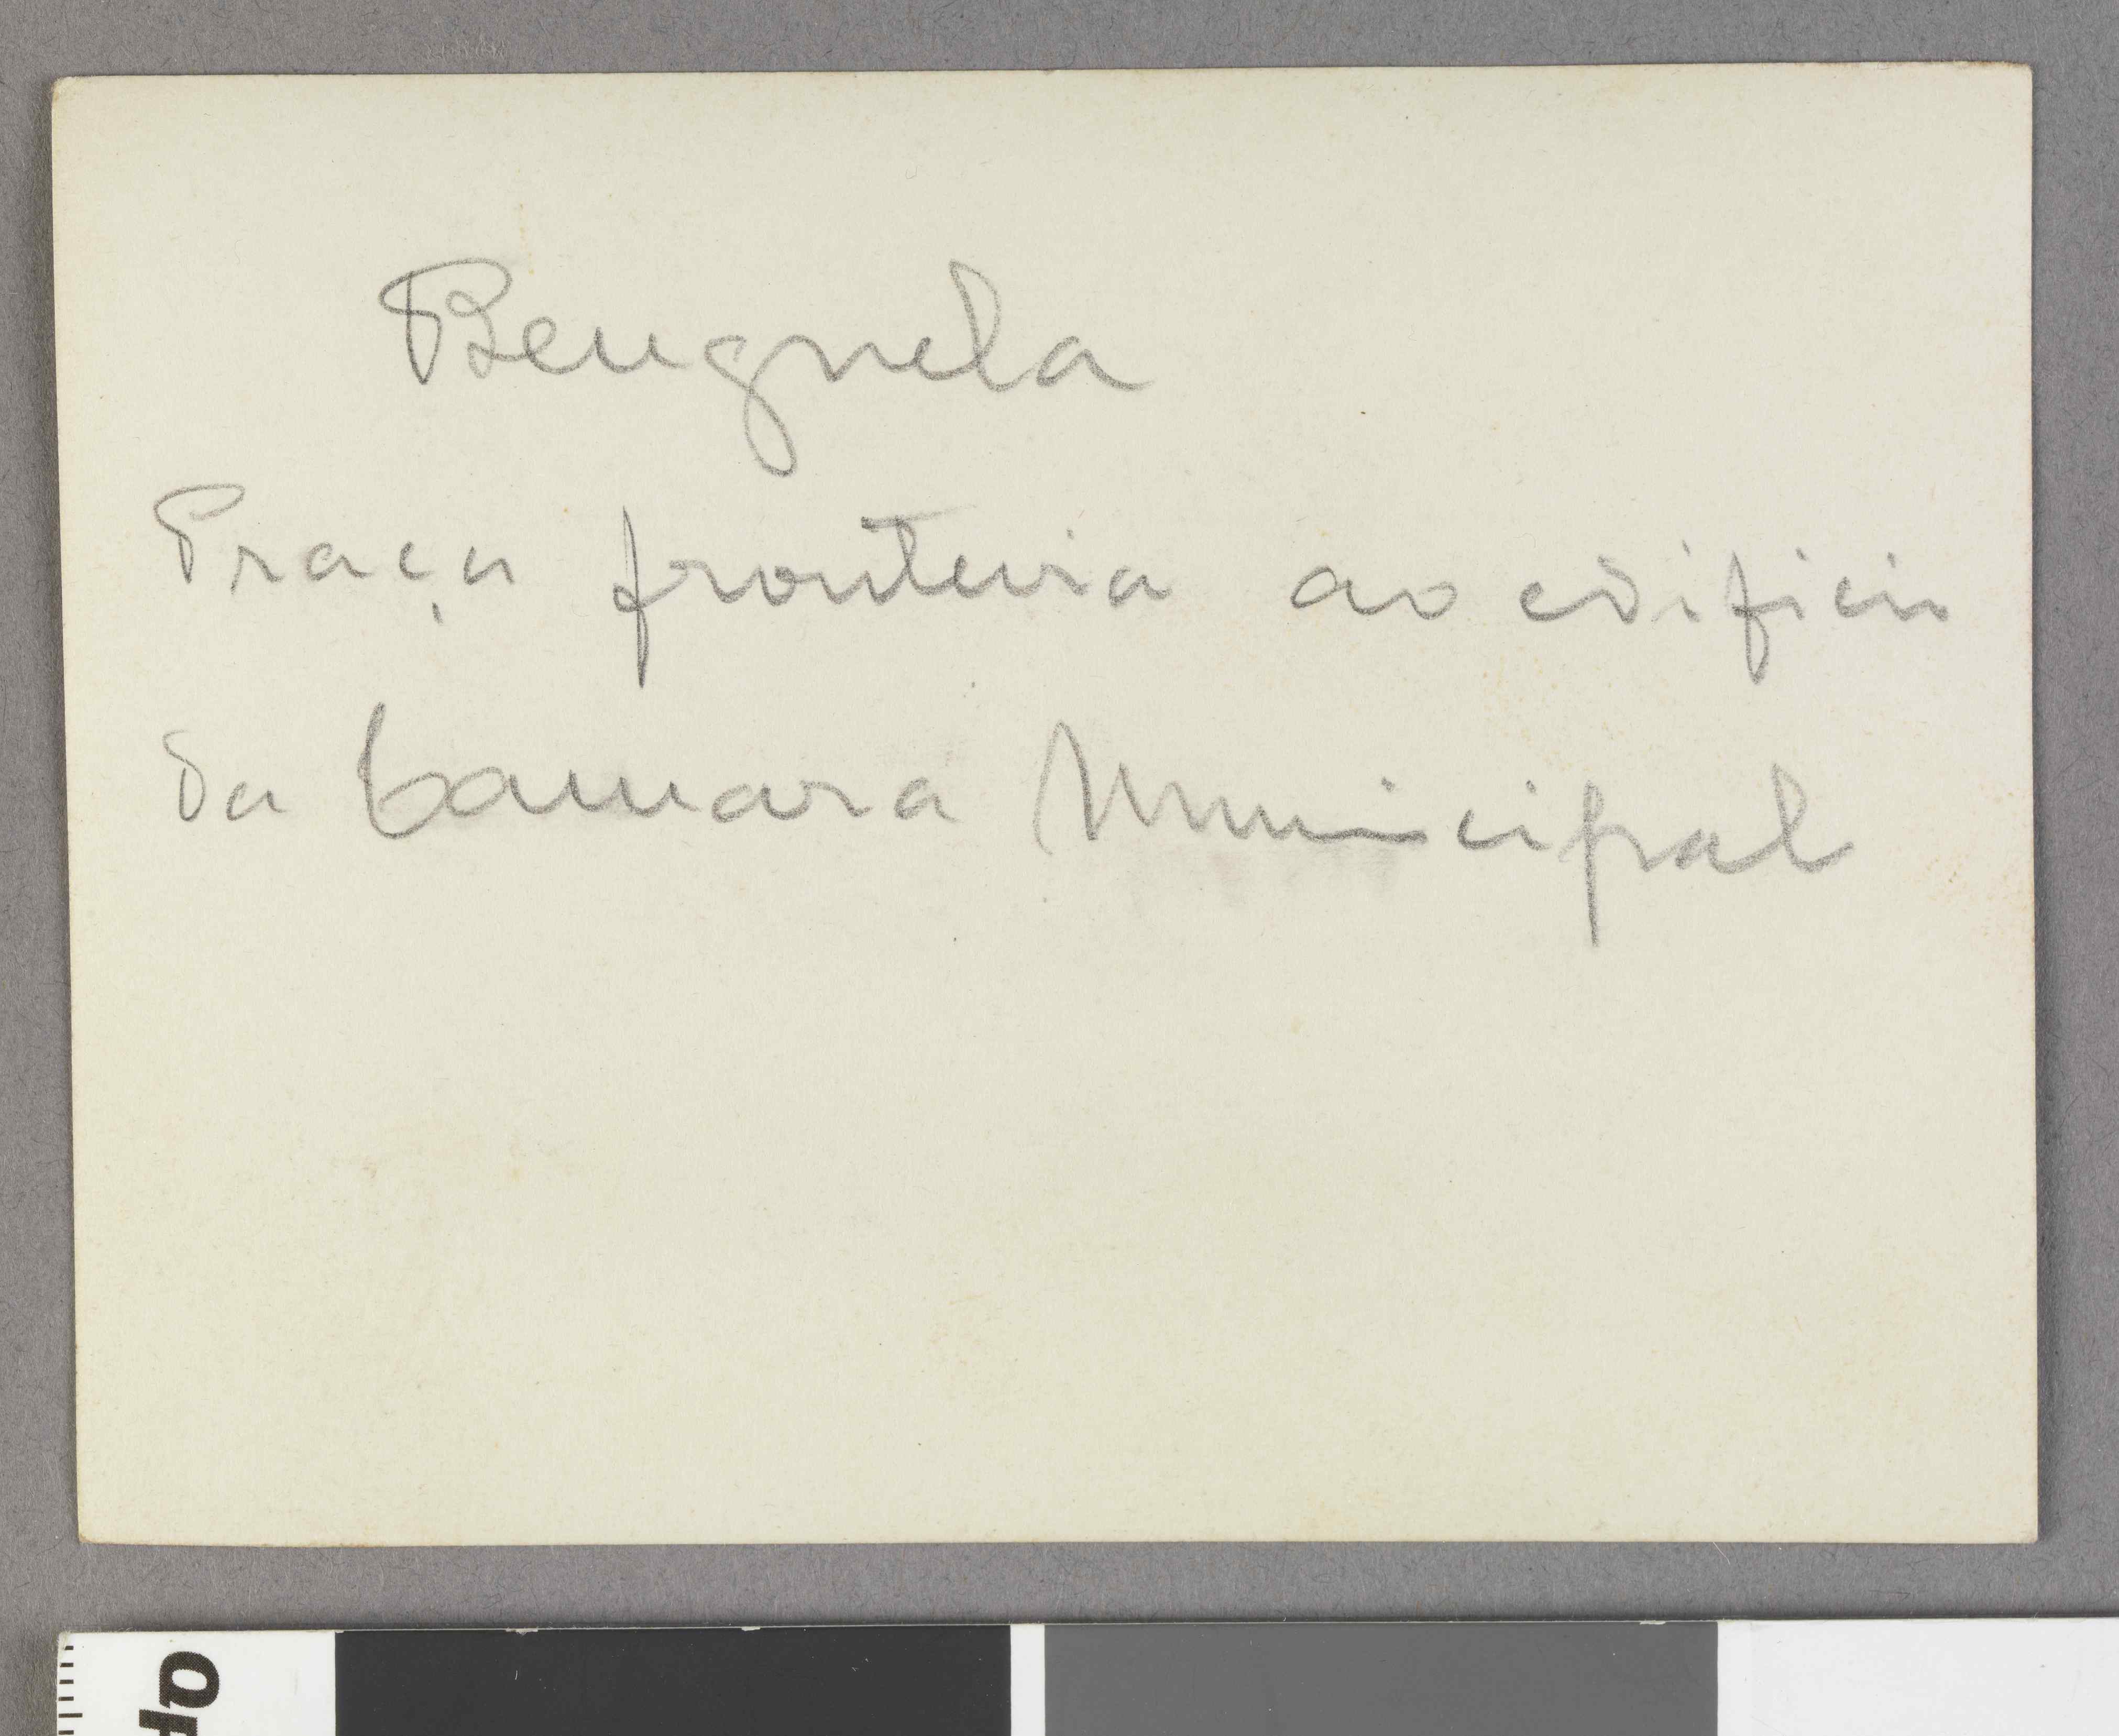 Benguela
Praça fronteira ao edificio
da Camara Municipal